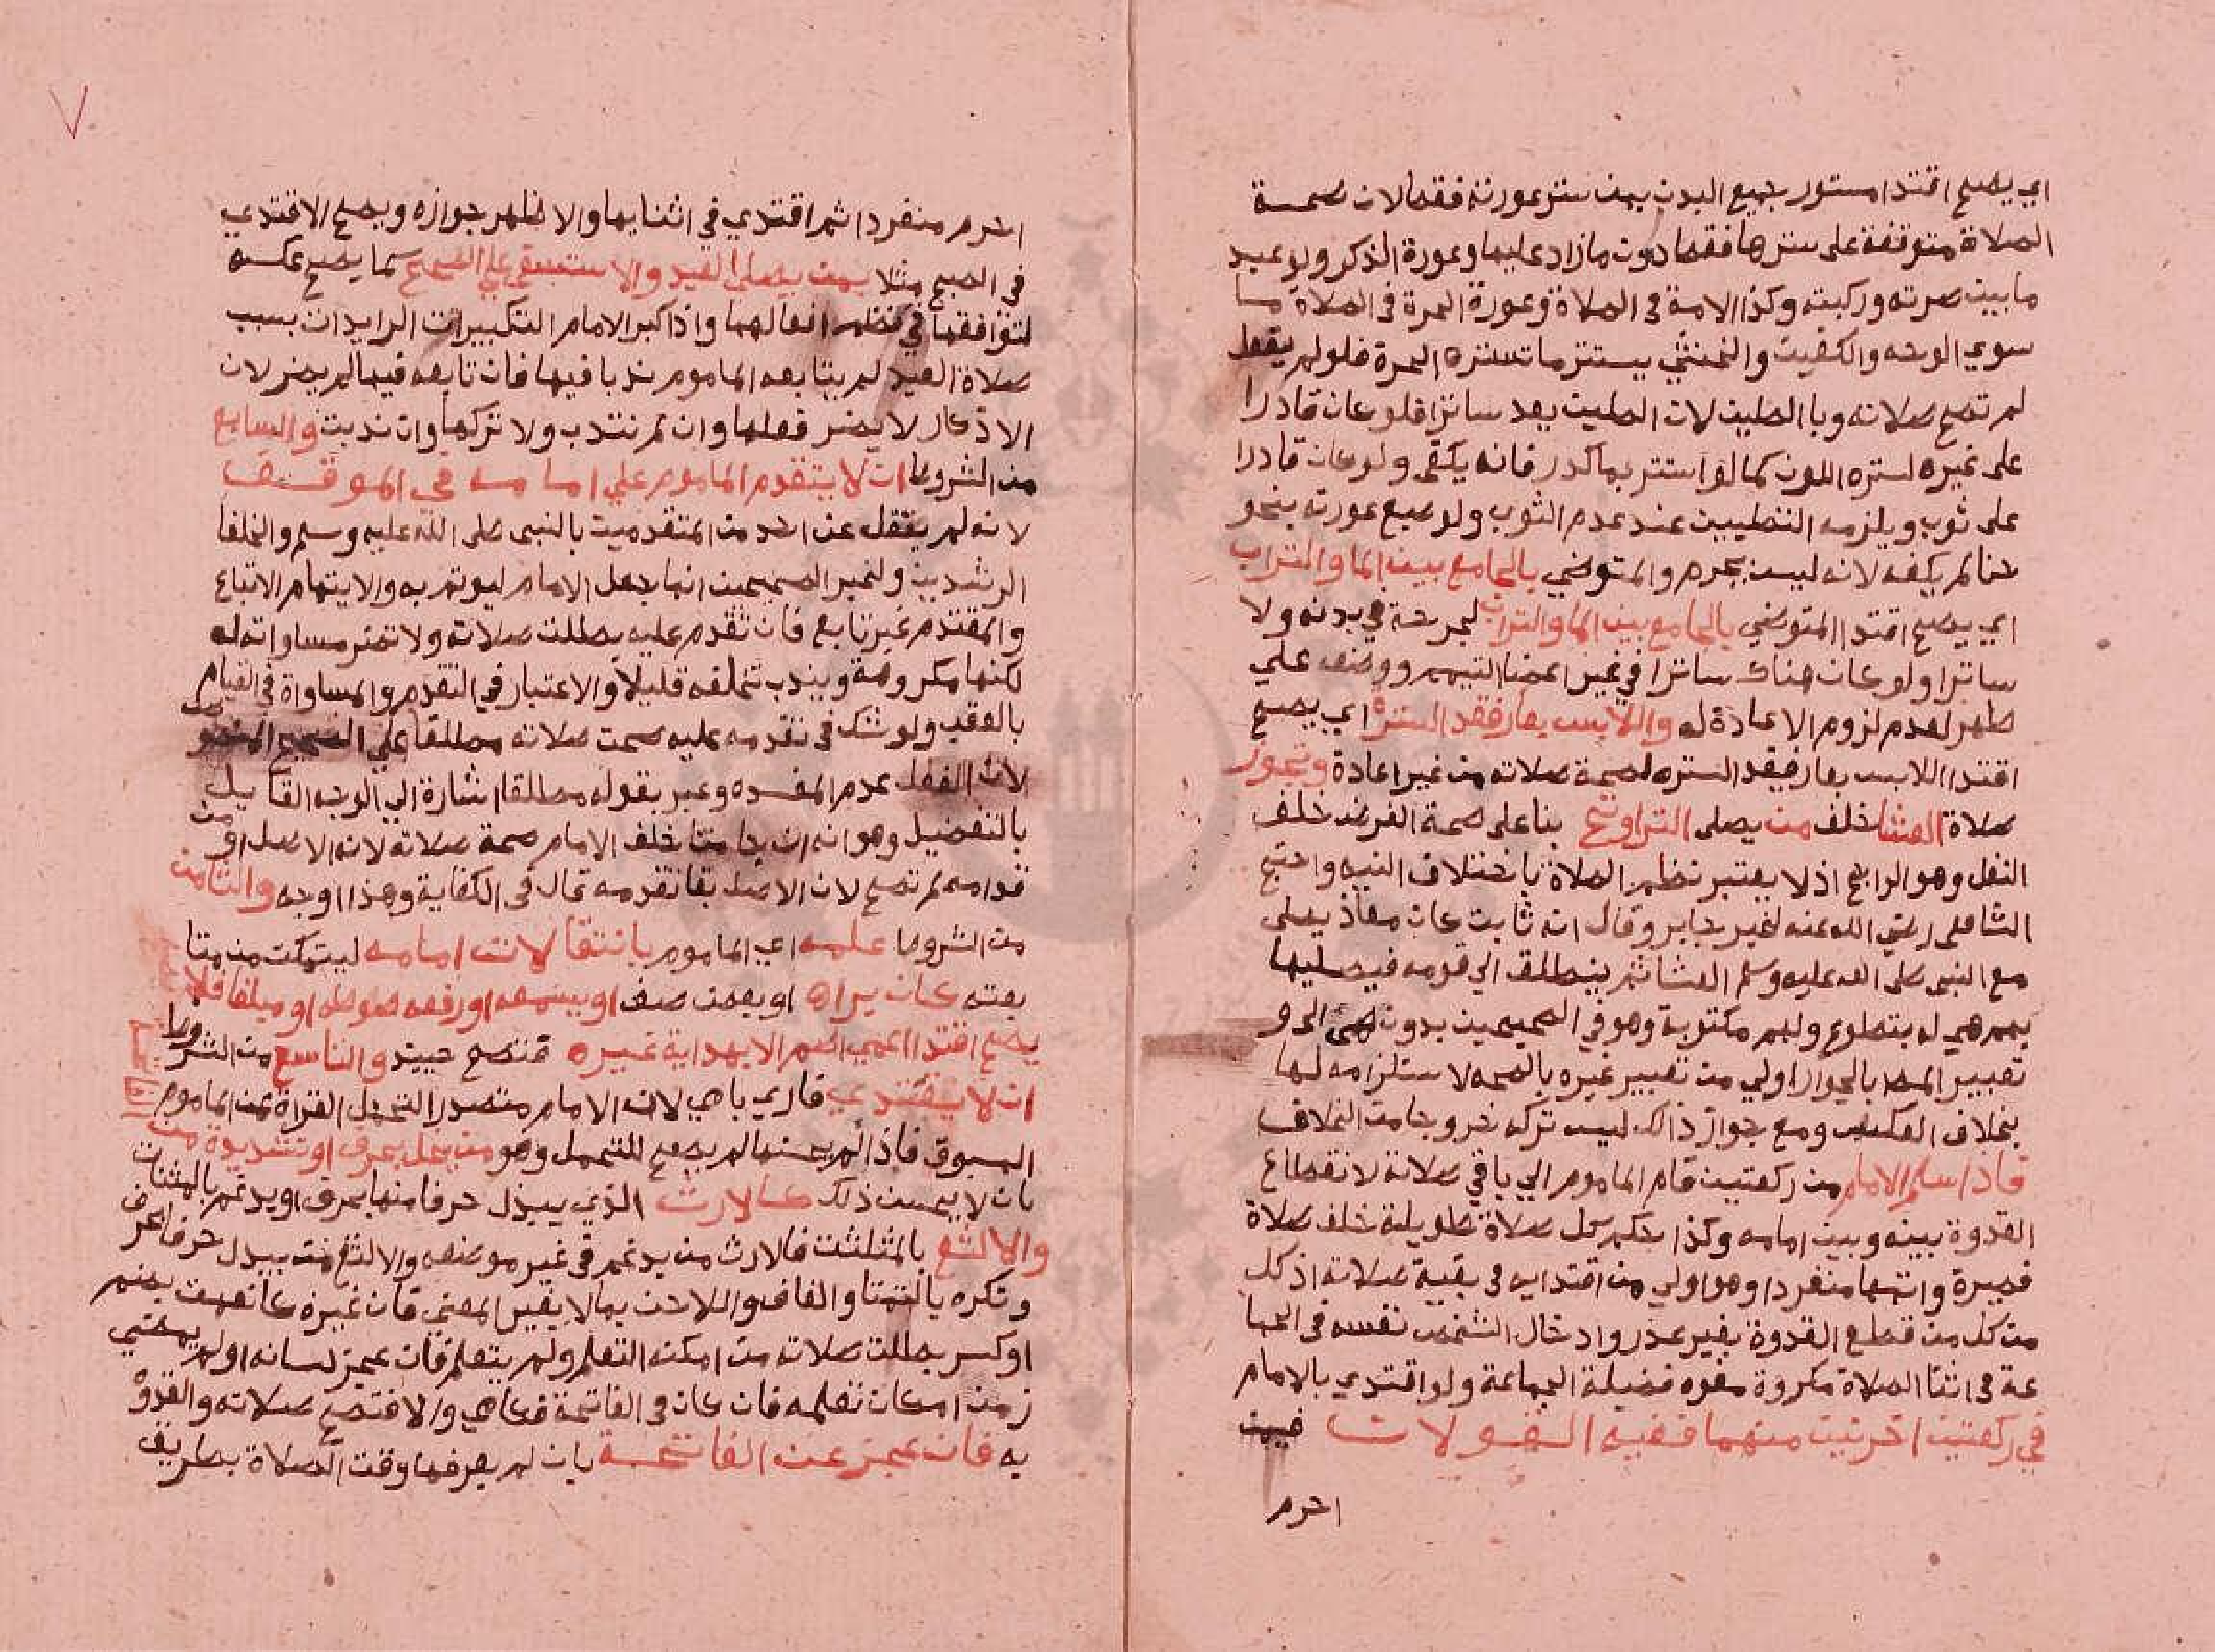 اي يصح اقتدا مستور جميع البدن بمن ستر عورته فقط لان صحـة
الصلاة متوقفة على سترها فقط دون ما زاد عليها وعورة الذكر ولو عبد
ما بين صرته وركبته وكذا الامة في الصلاة وعورة الحرة في الصلاة مـا
سوي الوجه والكفين والخنثي يستتر ما تستره الحرة فلو لم يفعل
لم تصح صلاته وبا الطين لان الطين يعد ساترا فلو كان قادرا
على غيره لستره اللون كما لو استتر بما كدر فانه يكفي ولو كان قادرا
على ثوب ويلزمه التطيين عند عدم الثوب ولو صبغ عورته بنحو
حنا لم يكفه لانه ليس بجرم والمتوضي بالجامع بين الما والتراب
اي يصح اقتدا المتوضي بالجامع بين الما والتراب لجرحة في بدنه ولا
ساترا ولو كان هناك ساترا في غير اعضا التيمم ووضعه علي
طهر لعدم لزوم الاعادة له واللابس بعار فقد السترة اي يصح
اقتدا اللابس بعار فقد الستره لصحة صلاته من غير اعادة وتجوز
صلاة العشا خلف من يصلى التراويح بنا على صحة الفرض خلف
النفل وهو الراجح اذ لا يعتبر نظم الصلاة باختلاف النيه واحتج
الشافعى رضي الله عنه لخبر جابر وقال انه ثابت كان معاذ يصلى
مع النبي صلى الله عليه وسلم العشا ثم ينطلق الي قومه فيصليها
بهم هي له بتطوع ولهم مكتوبة وهو في الصحيحين بدون هى الى و
تعبير المص بالجواز اولي من تعبير غيره بالصحه لاستلزامه لها
بخلاف العكس ومع جواز ذالك ليس تركه خروجا من الخلاف
فاذا سلم الامام من ركعتين قام الماموم الي باقي صلاته لانقطاع
القدوة بينه وبين امامه وكذا حكم كل صلاة طويلة خلف صلاة
قصيرة واتمها منفردا وهو اولي من اقتدايه في بقية صلاته اذ كل
من كل من قطع القدوة بغير عذر وادخال الشخص نفسه في الجما
عة في اثنا الصلاة مكروة مفوه فضيلة الجماعة ولو اقتدي بالامام
في ركعتين اخرتين منهما ففيه القولان فيمن
احرم
احرم منفردا ثم اقتدي في اثنايها والاظهر جوازه ويصح الاقتدي
في الصبح مثلا بمن يصلى العيد والاستسقي علي الصحيح كما يصح عكسه
لتوافقها في نظم افعالهما واذا كبر الامام التكبيرات الزايدات بسبب
صلاة العيد لم يتابعه الماموم ندبا فيها فان تابعه فيها لم يضر لان
الاذكار لا يضر فعلها وان لم تندب ولا تركها وان ندبت والسابع
من الشروط ان لا يتقدم الماموم علي امامه في الموقف
لانه لم ينقل عن احد من المتقدمين بالنبي صلى الله عليه وسلم والخلفا
الرشدين ولخبر الصحيحين انما جعل الامام ليوتم به والايتمام الاتباع
والمقتدم غير تابع فان تقدم عليه بطلت صلاته ولا تضر مساواته له
لكنها مكروهة ويندب تخلفه قليلا والاعتبار في التقدم والمساواة في القيام
بالعقب ولو شك في تقدمه عليه صحت صلاته مطلقا علي الصحيح المنصوص
لان الاصل عدم المفسده وعبر بقوله مطلقا اشارة الي الوجه القايل
بالتفضيل وهو انه ان جا من خلف الامام صحة صلاته لانه الاصل او من
قدامه لم تصح لان الاصل بقا تقدمه قال في الكفاية وهذا اوجه والثامن
من الشروط علمه اي الماموم بانتقالات امامه ليتمكن من متا
بعته كان يراه او بعض صف او يسمعه او رفعه صوطه او مبلغا فلا
يصح اقتدا اعمي اصم الا بهداية غيره فتصح حينيذ والتاسع من الشروط
ان لا يقتدي قاري بامي لان الامام متصدر التحمل القراة عن الماموم
المسبوق فاذا لم يحسنها لم يصح للتحمل وهو من يخل بحرف او تشديدة من
بان لا يحسن ذلك كالارث الذي يبذل حرفا منها بحرف او يدغم بالمثنات
والالثغ بالمثلثت فالارث من يدغم في غير موضعه والالثغ من يبدل حرفا بحرف
وتكره بالتمتا والفاف واللاحن بما لا يغير المعني فان غيره كانعمت بضم
او كسر بطلت صلاته من امكنه التعلم ولم يتعلم فان عجز لسانه او لم يمضي
زمن امكان تعلمه فان كان في الفاتحة فكامي والا فتصح صلاته والقدوة
به فان عجز عن الفاتحـة بان لم يعرفها وقت الصلاة بطريق